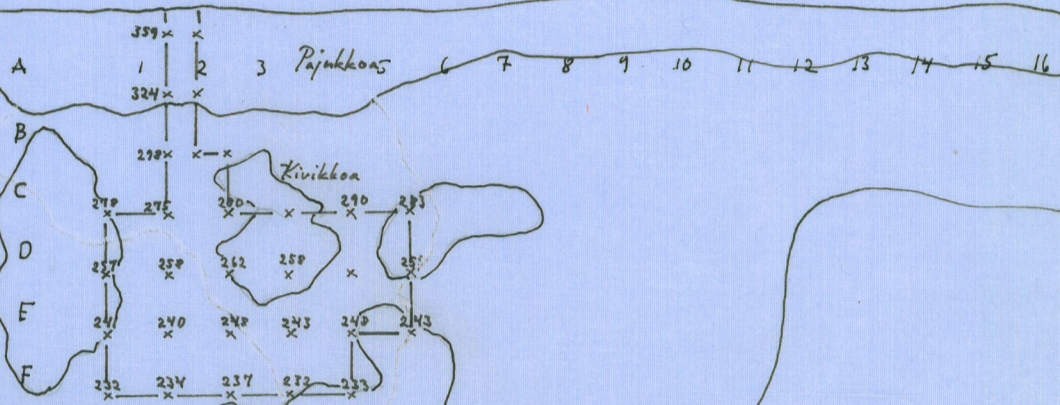 359
A 1 2 3 Pajukkoa 5 6 7 8 9 10 11 12 13 14 15 16
324
B
298
Kivikkoa
C
278 275 280 290 283
D
257 258 262 258 255
E
241 240 248 243 248 243
F
232 234 237 232 233